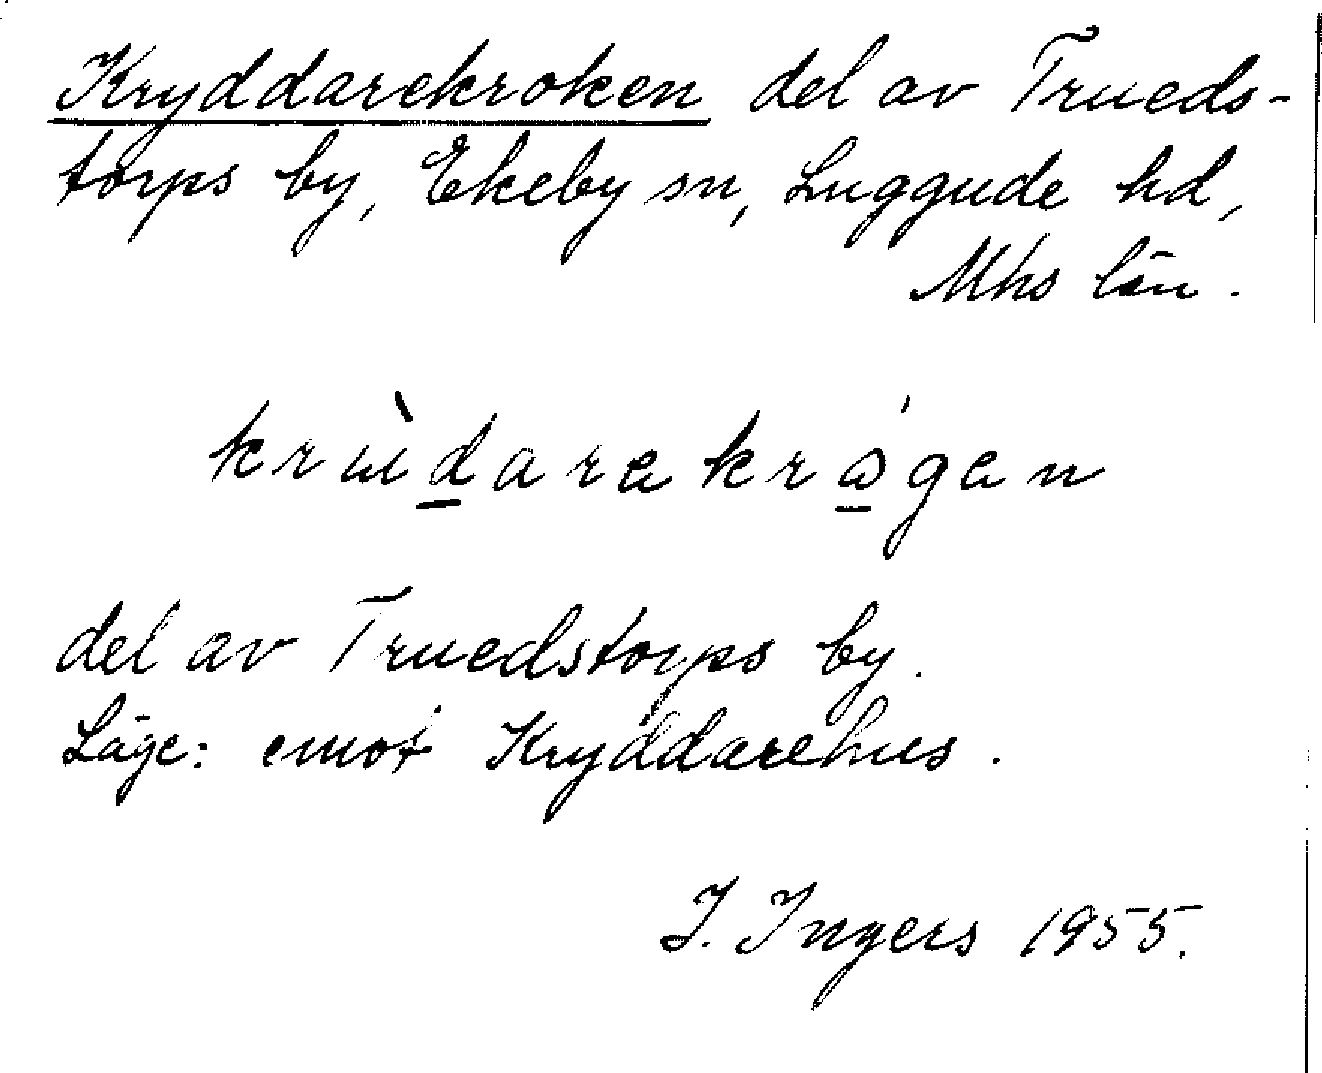 Kryddarekroken del av Trueds-
torps by, Ekeby sn, Luggude hd,
Mhs län.
del av Truedstorps by.
Läge: emot Kryddarehus.
I. Ingers 1955.